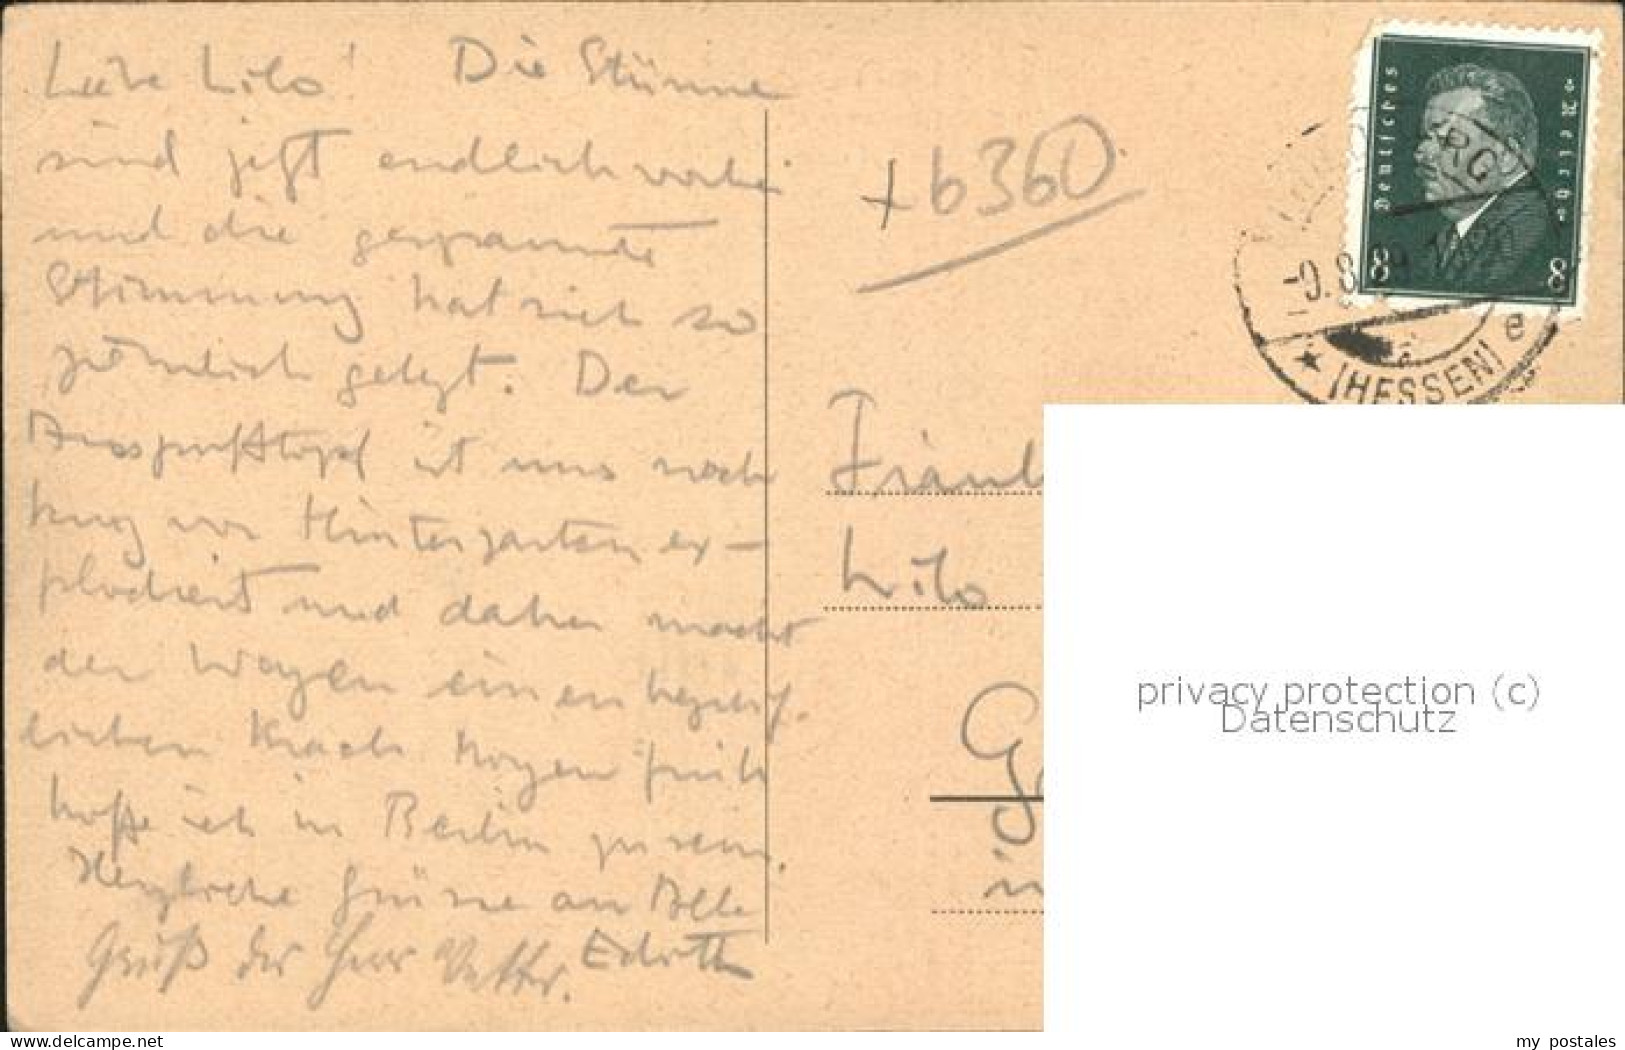 Liebe Lilo! Die Stürme
sind jetzt endlich vorbei
und die gespannte
Stimmung hat sich so
ziemlich gelegt. Der
Auspufftopf ist uns noch
kurz vor Hintergarten ex-
plodiert und daher macht
der Wagen einen
lichen Krach. Morgen früh
hoffe ich in Berlin zu sein.
Herzliche Grüsse an Alle
Edith
Gruß der Herr Vetter.
+6360
Deutsches Reich
8 8
RG
-9.8.
(HESSEN) e
Fräul
Lilo
G
in
privacy protection (c)
Datenschutz
www.ansichtskarten-center.de
my_postales